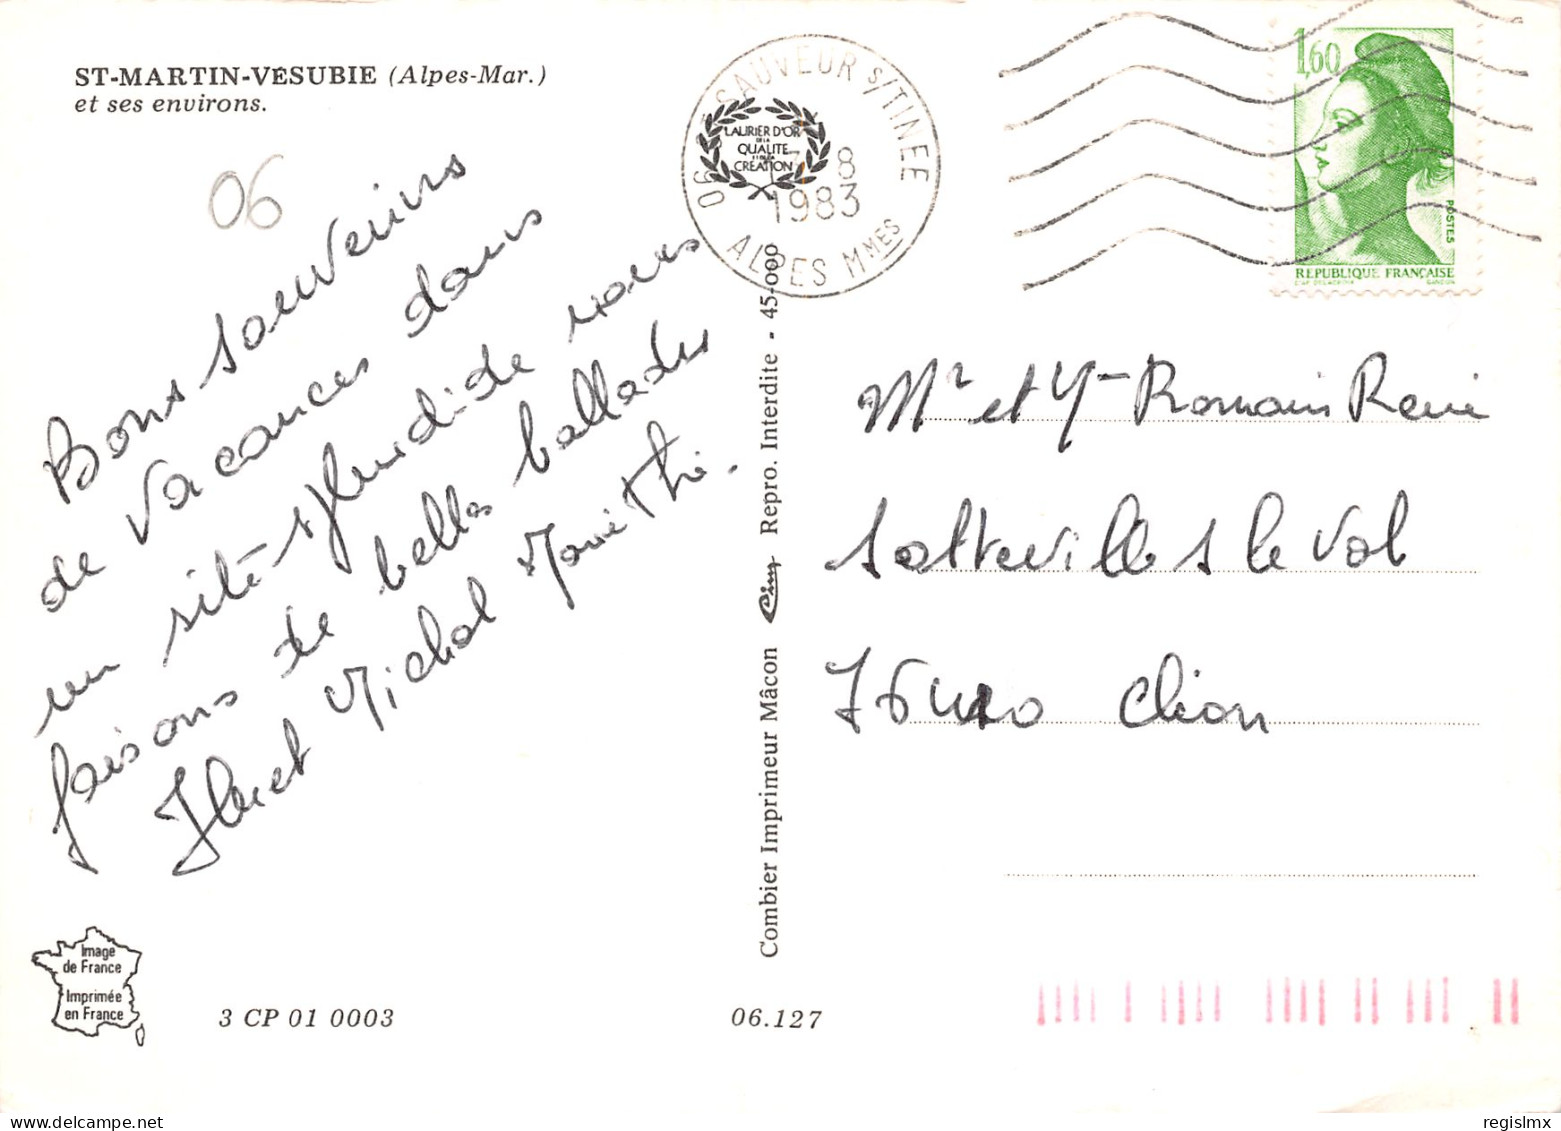 ST-MARTIN-VESUBIE (Alpes-Mar.)
et ses environs.
06
Bons souvenirs
de vacances dans
un site splendide nous
faisons de belles ballades
Michel Marie Thé.
SAUVEUR S/TINEE
06
8
1983
ALPES MMES
LAURIER D'OR
DE LA
QUALITE
ET DE LA
CREATION
1,60
POSTES
REPUBLIQUE FRANÇAISE
D'AP. DELACROIX GANDON
Mr et Romain René
Sotteville s le Val
Combier Imprimeur Mâcon Cim Repro. Interdite - 45-000
Image
de France
Imprimée
en France
3 CP 01 0003
06.127
regislmx